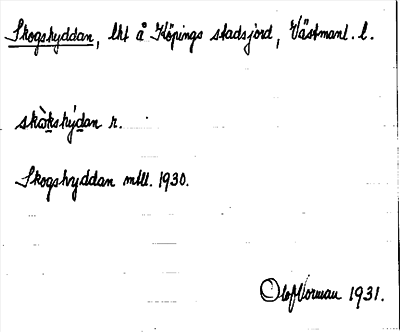 Skogshyddan, lht å Köpings stadsjord, Västmanl. l.
skòkshýdan r.
Skogshyddan mtll. 1930.
Olof Norman 1931.